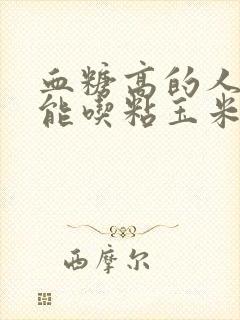 血糖高的人
能喫粘玉米
西摩尔